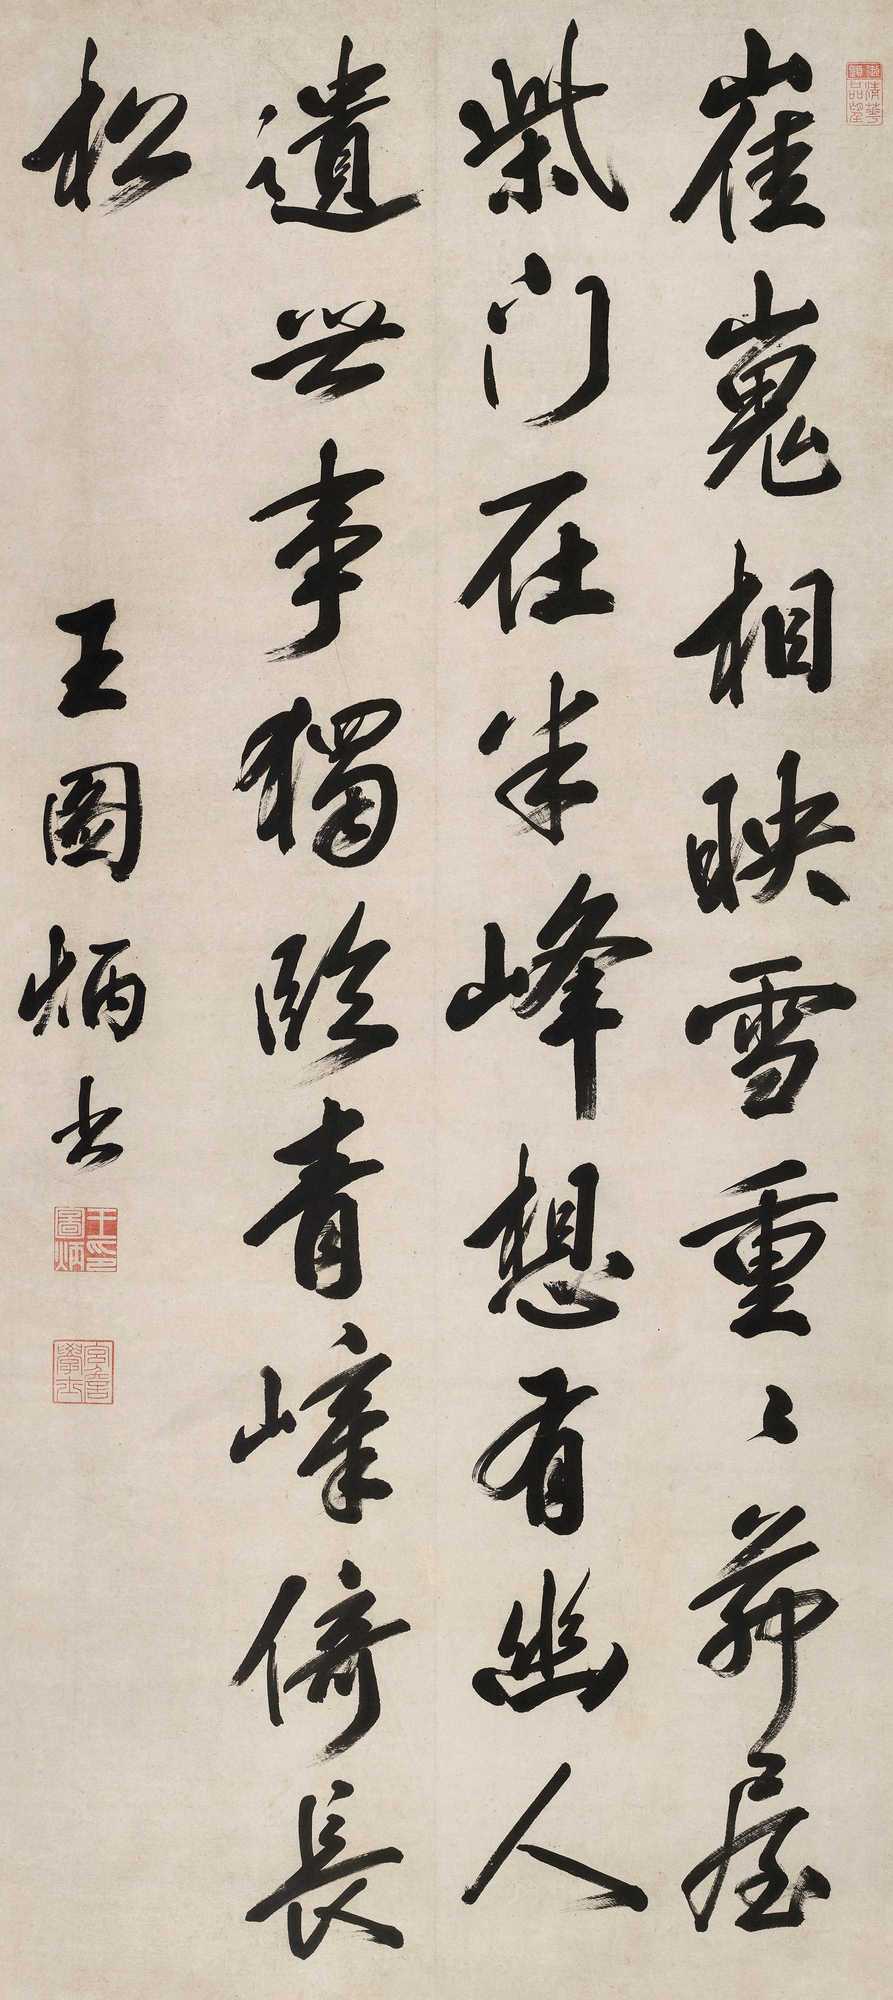 崔嵬相映雪重〻茅屋
柴門在半峰想有幽人
遺世事獨臨青嶂倚長
松
王圖炳書
王圖炳印